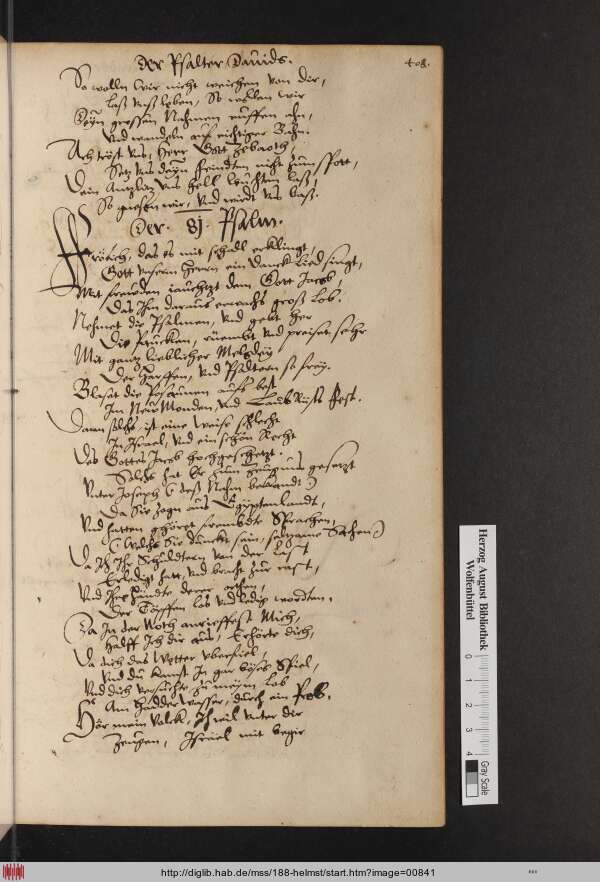 Der Psalter Dauids.
408.
So wolln wir nicht weichen von dir,
Laß vnß leben, So wollen wir
Deÿn grossen Nahmen ruffen ahn,
Vnd wandeln auf richtiger Bahn.
Ach tröst vns, Herr Gott Zebaoth,
Setz vns deÿn feindten nicht zum spott,
Dein Antzlitz vns hell leuchten laß,
So genesen wir, vnd wirdt vns baß.
Der. 81. Psalm.
Frölich, das es mit schall erklingt,
Gott vnserm Herrn ein Danck Lied singt,
Mit frewden jauchtzt dem Gott Jacobs,
Das Ihm daraus erwachs groß Lob.
Nehmet die Psalmen, vnd gebt her
Die Paucken, rüembt vnd preiset sehr
Mit gantz lieblicher Melodeÿ
Der Harffen, vnd Psaltern so freÿ.
Blaset die Posaunen aufs best
Im Neu Monden, vnd Laub Rüst Fest.
Dann solchs ist eine Weise schlecht
In Israel, vnd ein schön Recht
Des Gottes Jacob hochgeschetzt.
Solchs hat Er zum Zeugnus gesetzt
Vnter Joseph (deß Nahm bekandt)
Da Sie zogn aus Egÿptenlandt,
Vnd hatten gehöret frembdte Sprachen,
(Welchs Sie dünckt sein, seltzame Sachen)
Da Ich Ihr Schuldtern von der Last
Erledigt hatt, vnd bracht zur rast,
Vnd Ihre Händte
Der Töpffen los vnd ledig wordten.
Da In der Noth anrieffest Mich,
Halff Ich dir aus, Erhörte dich,
Da dich das Wetter vberfiel,
Vnd du kamst In gar böses Spiel,
Vnd dich versuchte zu meÿm Lob
Am Hadder Wasser, durch ein Prob.
Hör mein Volck, Ich wil vnter dir
Zeugen, Israel mit begir
Herzog August Bibliothek
Wolfenbüttel
0 1 2 3 4
Gray Scale
http://diglib.hab.de/mss/188-helmst/start.htm?image=00841